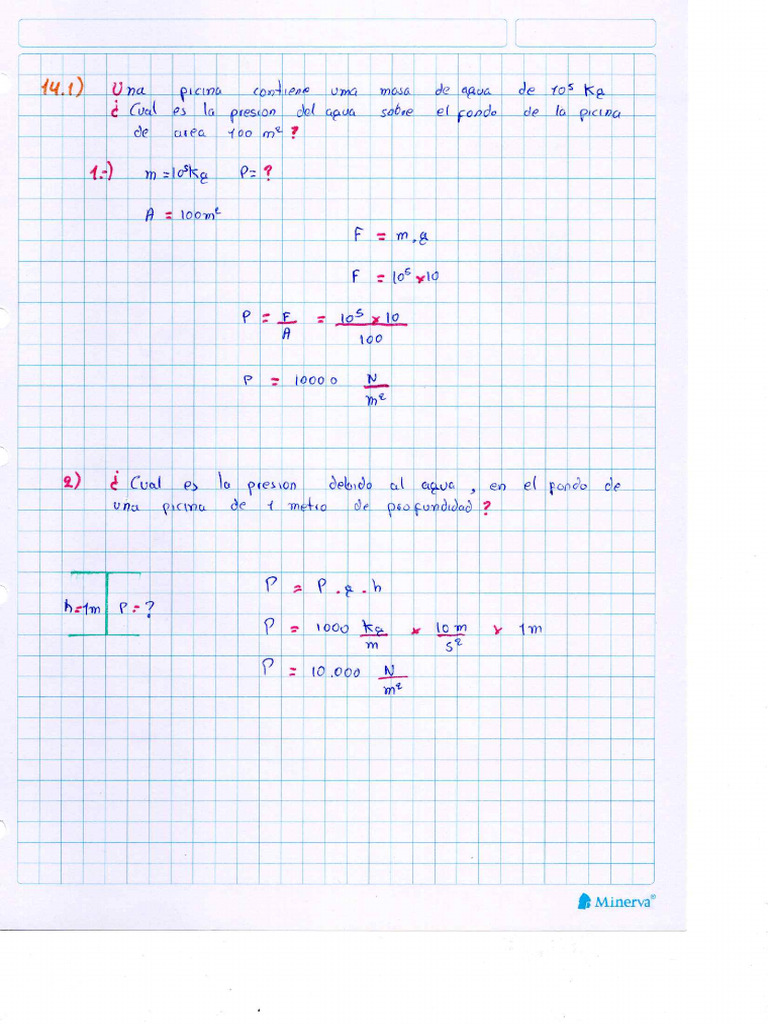 14.1) Una picina contiene uma masa de agua de 10⁵ Kg
¿ Cual es la presion del agua sobre el fondo de la picina
de area 100 m² ?
1.-) m = 10⁵Kg P= ?
A = 100m²
F = m.g
F = 10⁵ x 10
P = F/A = 10⁵ x 10 / 100
P = 10000 N/m²
2) ¿ Cual es la presion debido al agua , en el fondo de
una picina de 1 metro de profundidad ?
h=1m P = ?
P = P . g . h
P = 1000 kg/m x 10 m/s² x 1m
P = 10.000 N/m²
Minerva®